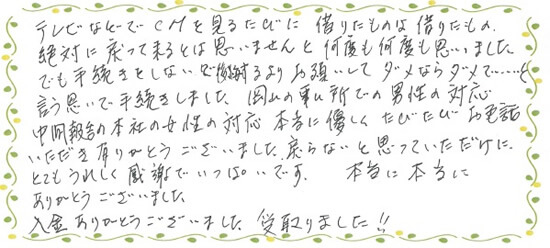 テレビなどでCMを見るたびに 借りたものは借りたもの、
絶対に戻って来るとは思いませんと何度も何度も思いました。
でも手続きをしないで後悔するよりお願いしてダメならダメで……と
言う思いで手続きしました。岡山の事ム所での男性の対応
中間報告の本社の女性の対応 本当に優しく たびたびお電話
いただき有りがとうございました。戻らないと思っていただけに、
とてもうれしく感謝でいっぱいです。 本当に本当に
ありがとうございました。
入金ありがとうございました。受取りました!!